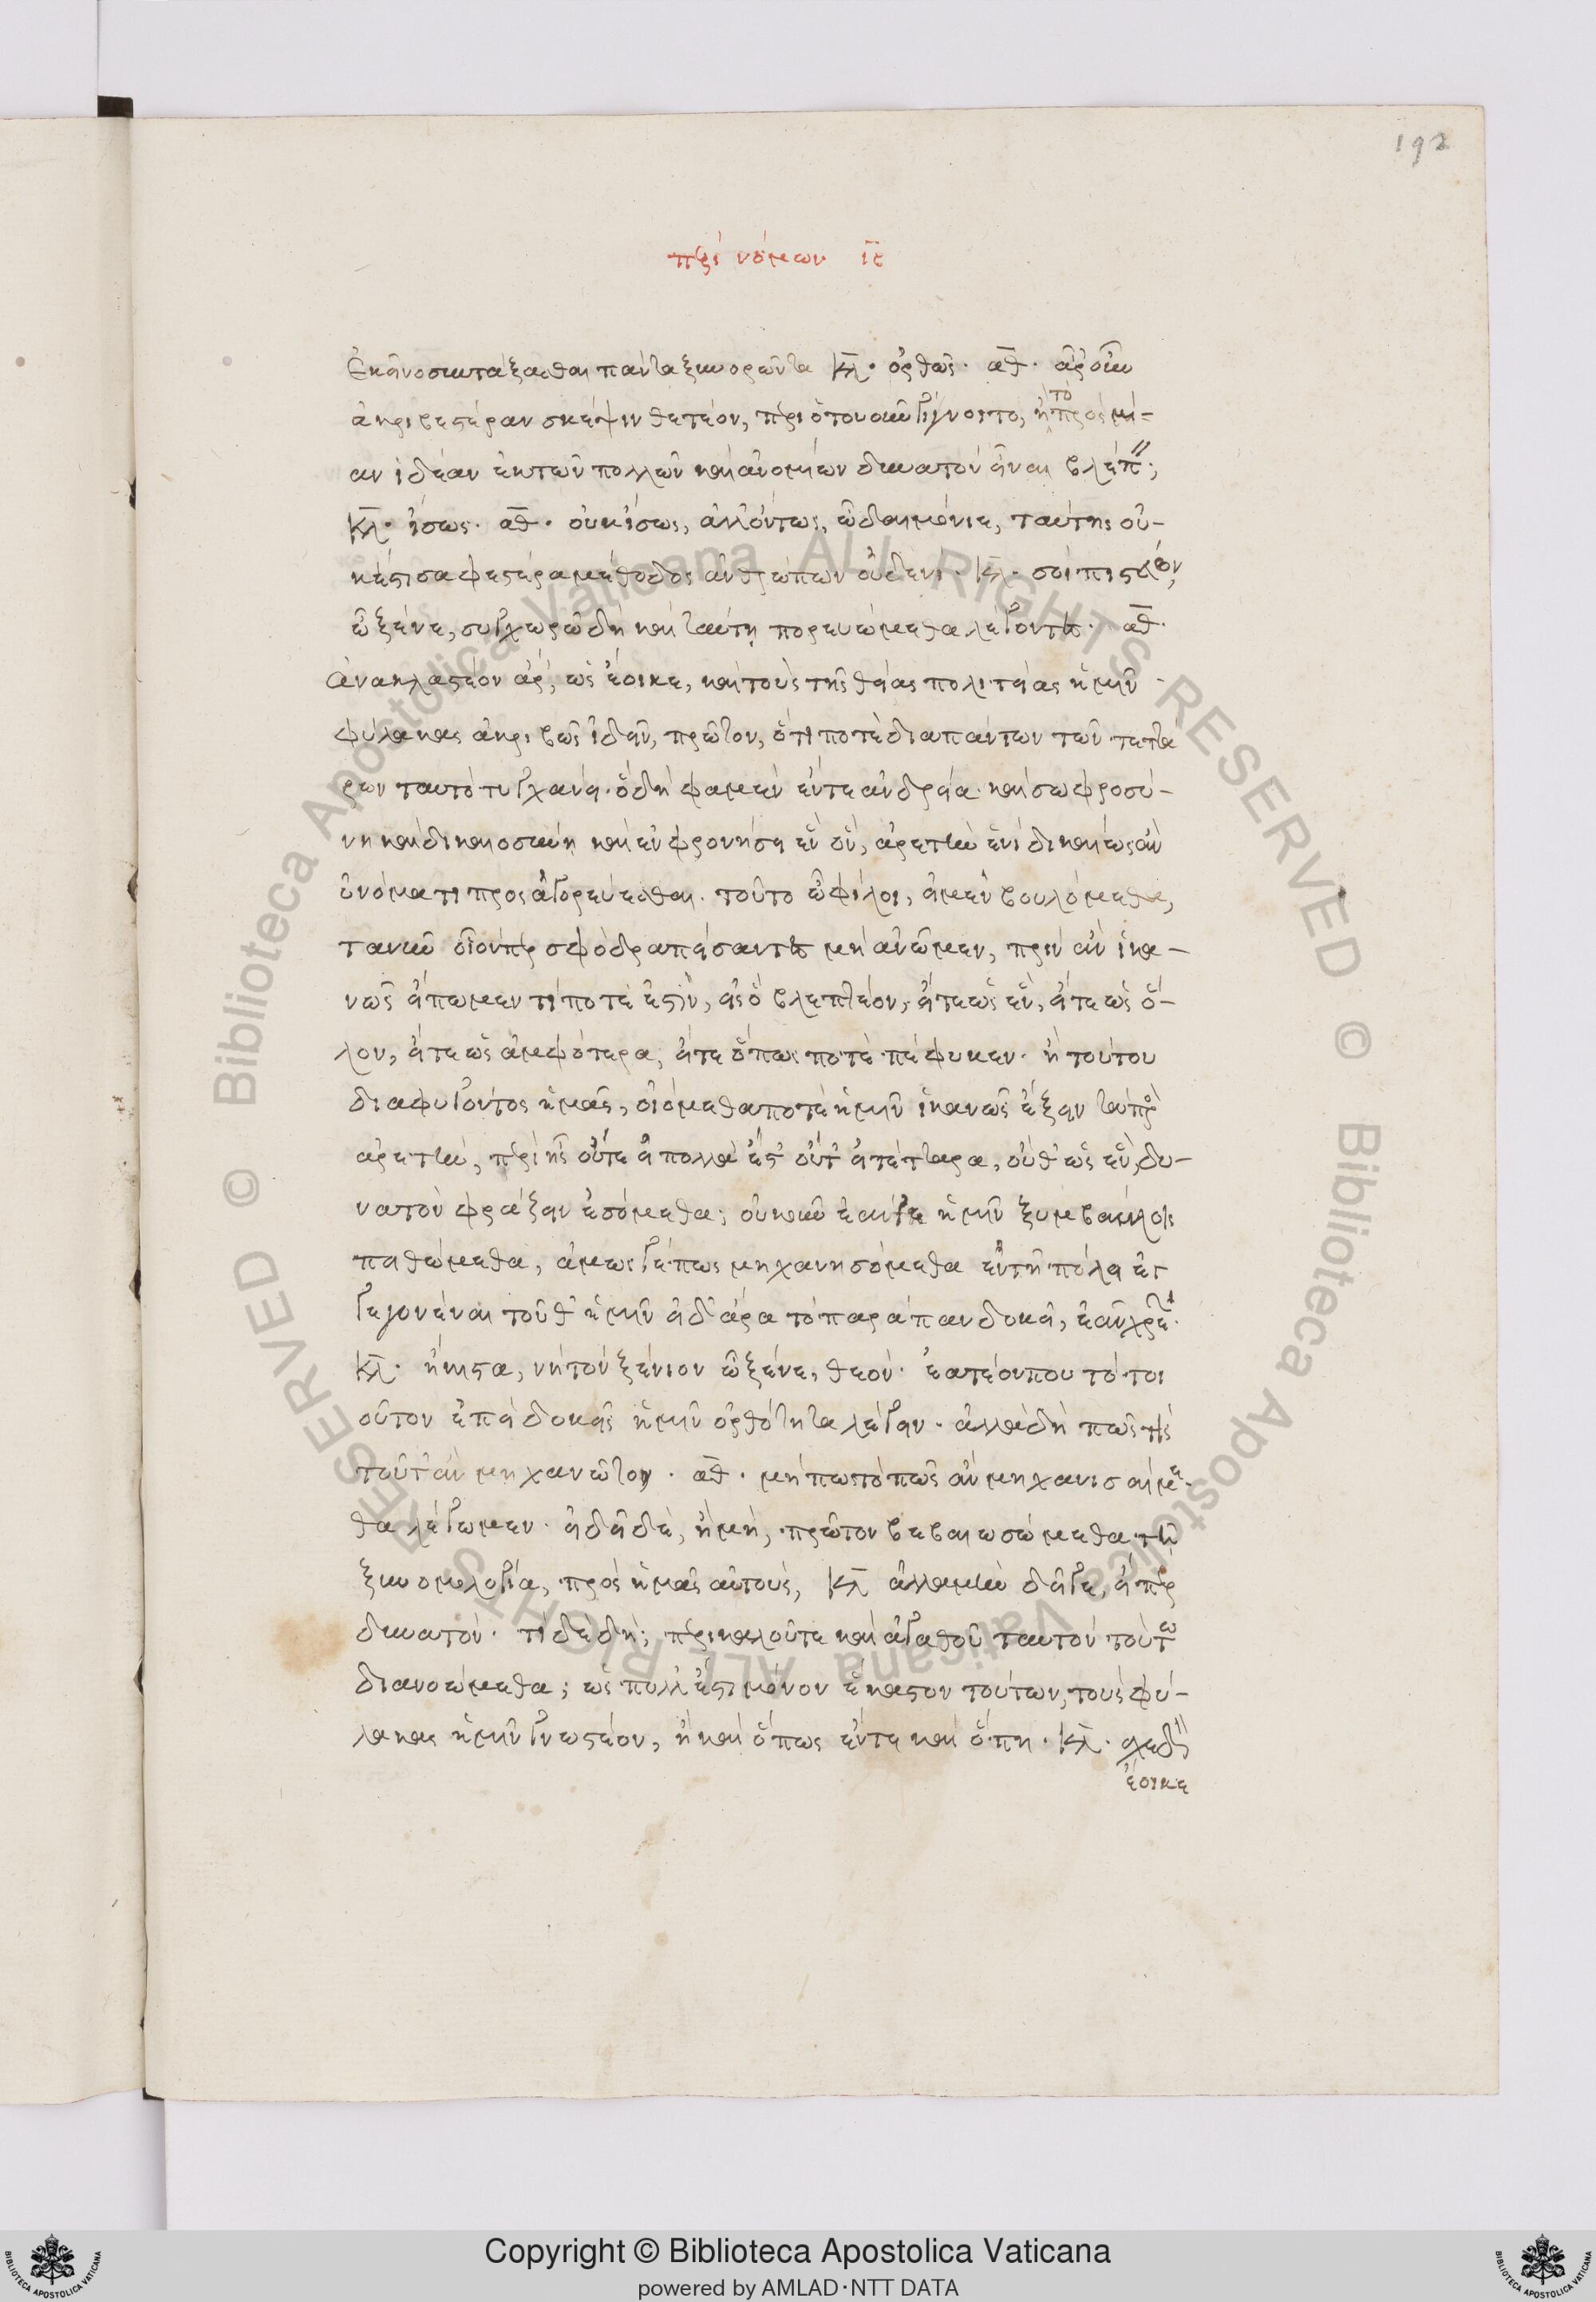 192
περὶ νόμων ιβ
ἐκεῖνο συντάξασθαι πάντα ξυνορῶντα κλ. ὀρθῶς. αθ. ἆρ' οὖν
ἀκριβεστέραν σκέψιν θετέον, περὶ ὁτουοῦν γίγνοιτο, ἢ τὸ πρὸς μί-
αν ἰδέαν ἐκ τῶν πολλῶν καὶ ἀνομοίων δυνατὸν εἶναι βλέπειν;
κλ. ἴσως. αθ. οὐκ ἴσως, ἀλλ' ὄντως, ὦ δαιμόνιε, ταύτης οὐ-
κ ἔστι σαφεστέρα μέθοδος ἀνθρώπων οὐδενί. κλ. σοὶ πιστεύων,
ὦ ξένε, συγχωρῶ δὴ καὶ ταύτῃ πορευώμεθα λέγοντες. αθ.
ἀναγκαστέον ἄρ', ὡς ἔοικε, καὶ τοὺς τῆς θείας πολιτείας ἡμῖν
φύλακας ἀκριβῶς ἰδεῖν, πρῶτον, ὅτι ποτὲ διαπάντων τῶν τεττά
ρων ταυτὸ τυγχάνει. ὃ δή φαμεν ἔν τε ἀνδρεία καὶ σωφροσύ-
νη καὶ δικαιοσύνη καὶ ἐν φρονήσει ἓν ὄν, ἀρετὴν ἑνὶ δικαίως ἂν
ὀνόματι προσαγορεύεσθαι. τοῦτο ὦ φίλοι, εἰ μὲν βουλόμεθα,
τανῦν οἷόνπερ σφόδρα πιέσαντες μὴ ἀνῶμεν, πρὶν ἂν ἱκα-
νῶς εἴπωμεν τί ποτέ ἐστιν, εἰς ὃ βλεπτέον, εἴτε ὡς ἕν, εἴτε ὡς ὅ-
λον, εἴτε ὡς ἀμφότερα, εἴτε ὅπως ποτὲ πέφυκεν. ἢ τούτου
διαφυγόντος ἡμᾶς, οἰόμεθα ποτὲ ἡμῖν ἱκανῶς ἕξειν τὰ πρὸς
ἀρετήν, περὶ ἧς οὔτε εἰ πολλὰ ἔστ' οὔτ' εἰ τέτταρα, οὔθ' ὡς ἕν, δυ-
νατοὶ φράζειν ἐσόμεθα; οὐκοῦν ἐὰν γε ἡμῖν ξυμβούλοις
πειθώμεθα, ἁμῶς γέ πως μηχανησόμεθα ἐν τῇ πόλει ἐγ
γεγονέναι τοῦθ' ἡμῖν εἰ δ' ἄρα τὸ παράπαν δοκεῖ, ἐᾶν χρε.
κλ. ἥκιστα, νὴ τὸν ξένιον ὦ ξένε, θεόν. ἐατέον που τὸ τοι
οῦτον ἐπεὶ δοκεῖς ἡμῖν ὀρθότητα λέγειν. ἀλλὰ δὴ πῶς τίς
τοῦτ' ἂν μηχανῶτο. αθ. μήπω τὸ πῶς ἂν μηχανισαίμε-
θα λέγωμεν. εἰ δεῖ δὲ, ἢ μὴ, πρῶτον βεβαιωσώμεθα τῇ
ξυνομολογία, πρὸς ἡμᾶς αὐτοὺς, κλ ἀλλὰ μὴν δεῖ γε, εἴπερ
δυνατόν. τί δὲ δή; περὶ καλοῦ τε καὶ ἀγαθοῦ ταυτὸν τοῦτω
διανοώμεθα; ὡς πόλλ' ἔστι μόνον ἕκαστον τούτων, τοὺς φύ-
λακας ἡμῖν γνωστέον, ἢ καὶ ὅπως ἕν τε καὶ ὅπη. κλ. σχεδὸν
ἔοικε